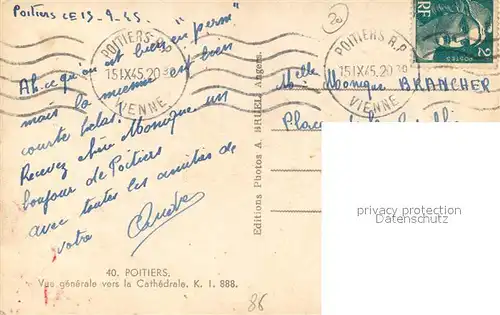 Poitiers CE 15-9-45
Ah ce qu'on est bien "en perm"
mais la mienne est bien
courte hélas!
Recevez chère Monique un
bonjour de Poitiers
avec toutes les amitiés de
votre
40. POITIERS.
Vue générale vers la Cathédrale. K. I. 888.
86
Editions Photos A. BRUEL, Angers.
20
POITIERS R.P.
15 IX 45. 20 30
VIENNE
POITIERS R.P.
15 IX 45. 20 30
VIENNE
RF
2
POSTES
Melle Monique BRANCHER
Place
privacy protection